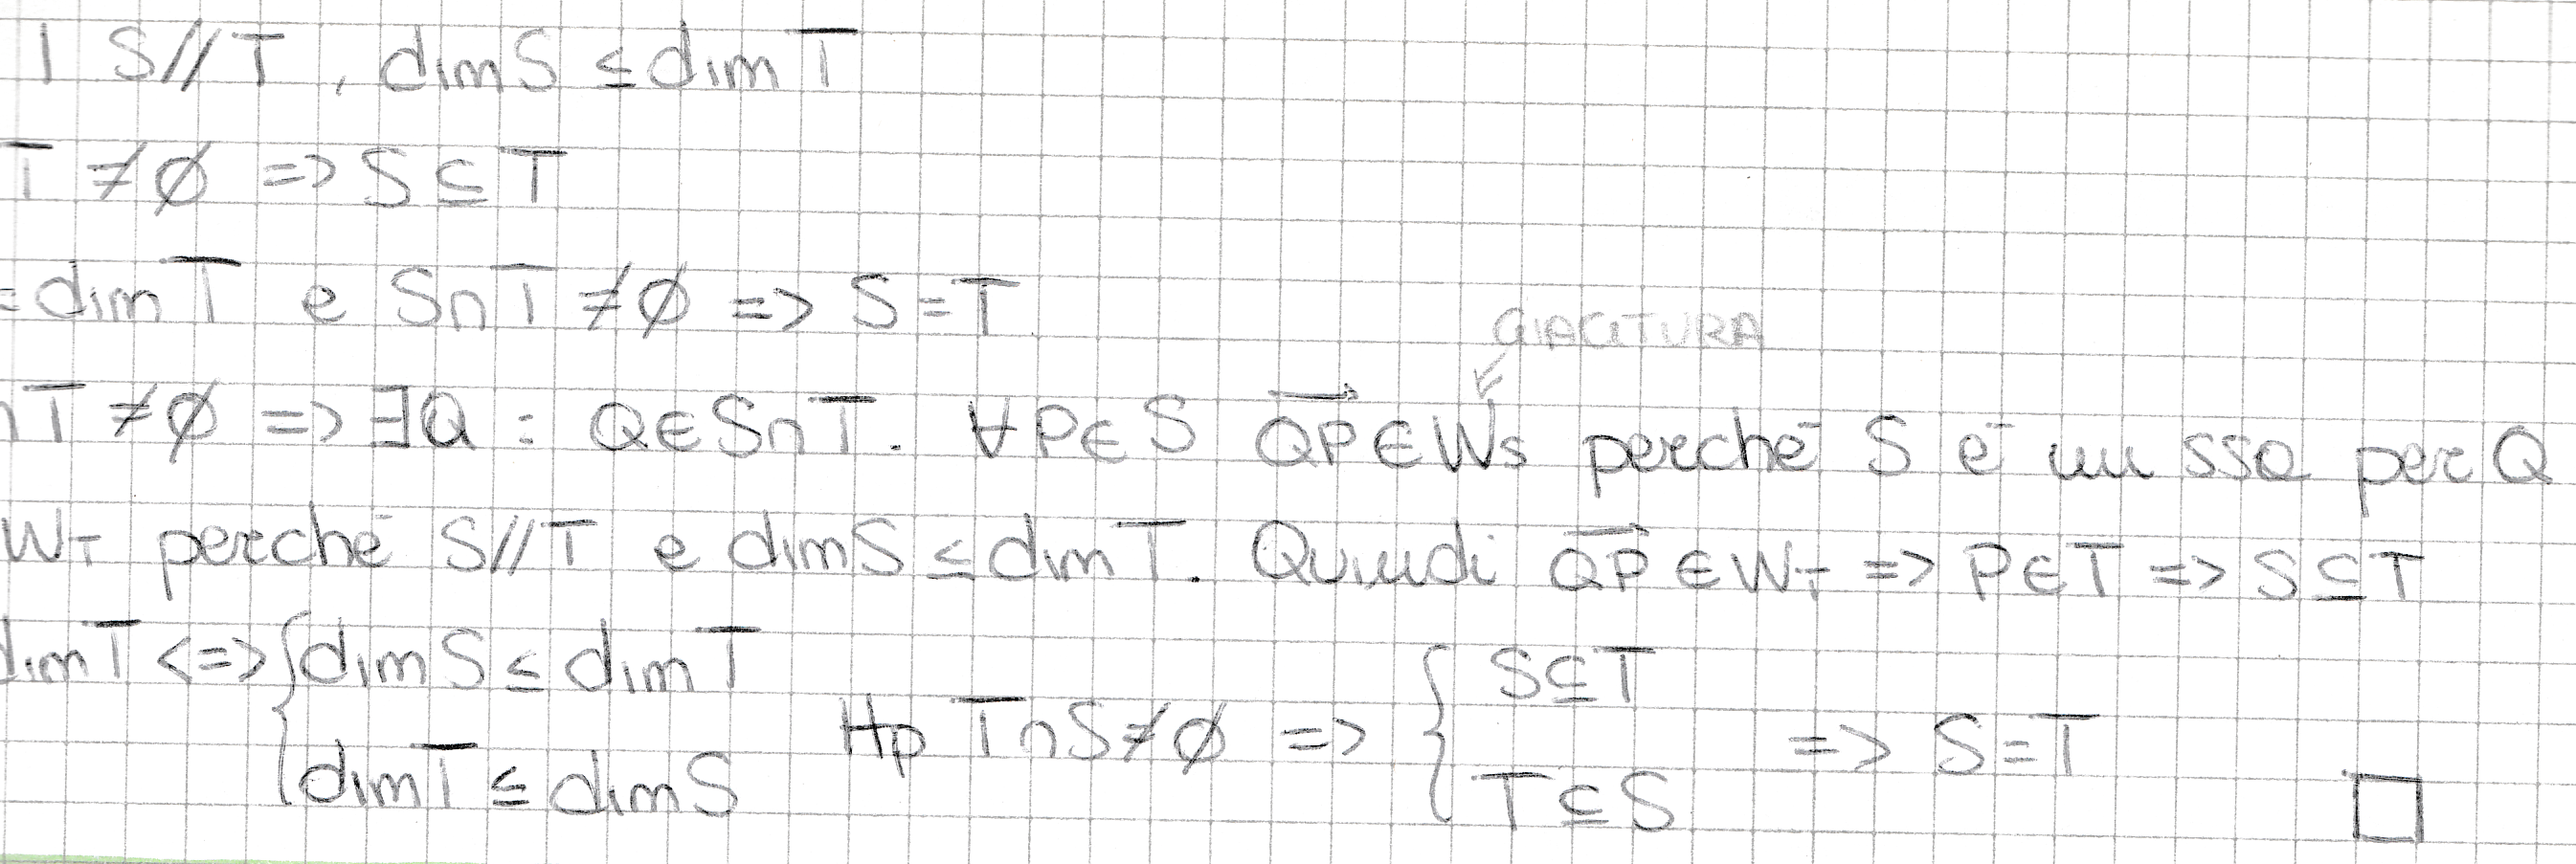 | S//T, dimS ≤ dimT
T ≠ ∅ => S ⊆ T
= dimT e S∩T ≠ ∅ => S=T
GIACITURA
∩T ≠ ∅ => ∃Q : Q∈S∩T. ∀P∈S QP∈Ws perché S è un SSA per Q
WT perché S//T e dimS ≤ dimT. Quindi QP∈WT => P∈T => S⊆T
dimT <=> { dimS ≤ dimT
Hp T∩S≠∅ => { S⊆T
=> S=T
dimT ≤ dimS
T⊆S